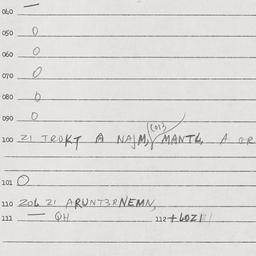 040 —
050 0
060 0
070 0
080 0
090 0
100 21 TROKT A NAJM, MANTL, A
101 0
110 20L 21 ARUNT3RNEMN,
111 — QH 112 +LOZI